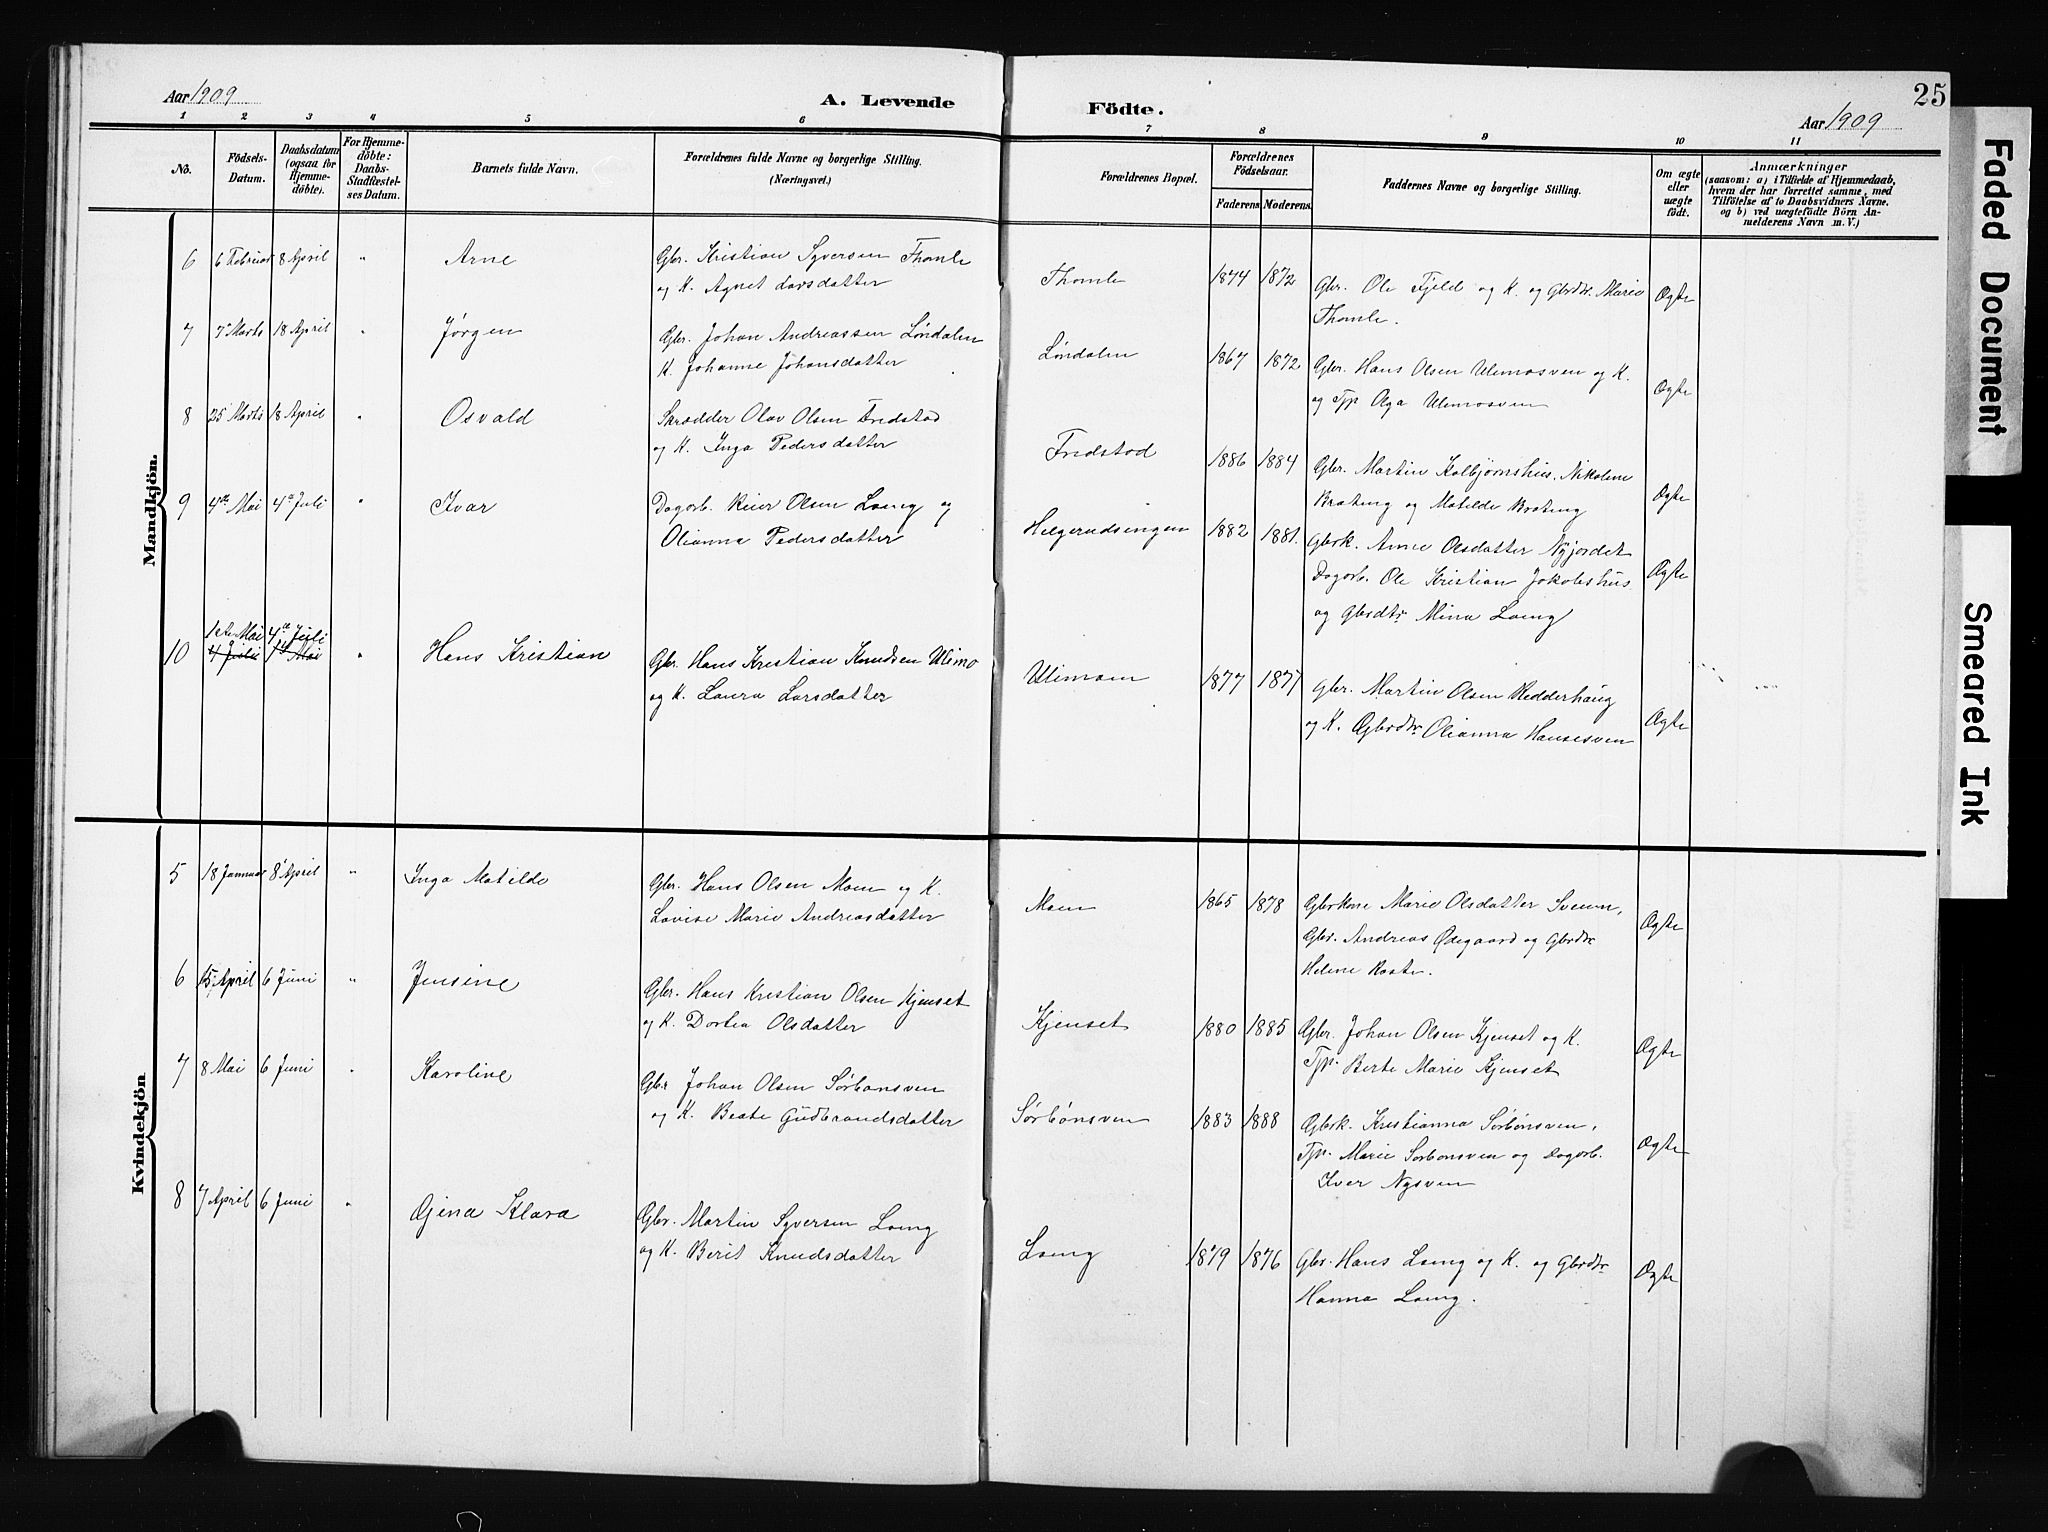 25
Aar 1909
A. Levende
Födte.
Aar 1909
1 2 3 4 5 6 7 8 9 10 11
No.
Födsels-
Datum.
Daabsdatum
(ogsaa for
Hjemme-
döbte).
For Hjemme-
döbte:
Daabs-
Stadfæstel-
ses Datum.
Barnets fulde Navn.
Forældrenes fulde Navne og borgerlige Stilling.
(Næringsvei.)
Forældrenes Bopæl.
Forældrenes
Födselsaar.
Faderens Moderens.
Faddernes Navne og borgerlige Stilling.
Om ægte
eller
uægte
födt.
Anmærkninger
(saasom: a) i Tilfælde af Hjemmedaab,
hvem der har forrettet samme, med
Tilföielse af to Daabsvidners Navne.
og b) ved uægtefödte Börn An-
melderens Navn m. V.)
Mandkjön.
6 6 Februar 8 April " Arne
Gbr. Kristian Syversen Thomle
og K. Agnet Larsdatter
Thomle 1874 1872
Gbr. Ole Fjeld og K. og Gbrdtr. Marie
Thomle.
Ægte
7 7 Marts 18 April " Jørgen
Gbr. Johan Andreassen Løndalen
K. Johanne Johansdatter
Løndalen 1867 1872
Gbr. Hans Olsen Ulimosven og K.
og Tp. Olga Ulimosven
Ægte
8 25 Marts 18 April " Osvald
Skrædder Olav Olsen Fredstad
og K. Inga Pedersdatter
Fredstad 1886 1884
Gbr. Martin Kolbjørnshus, Nikoline
Brateng og Matilde Brateng
Ægte
9 4de Mai 4de Juli " Ivar
Dagarb. Reier Olsen Laeng og
Olianna Pedersdatter
Helgerudsingen 1882 1881.
Gbrk. Anne Olsdatter Nyjordet
Dagarb. Ole Kristian Jakobshus
og Gbrdtr Mina Laeng
Ægte
10 1ste Mai 4de Juli
4 Juli 1st Mai " Hans Kristian
Gbr. Hans Kristian Knudsen Ulimo
og K. Laura Larsdatter
Ulimoen 1877 1877
Gbr. Martin Olsen Hedderhaug
og K. Gbrdtr. Olianna Hansesven
Ægte
Kvindekjön
5 18 Januar 8 April " Inga Matilde
Gbr. Hans Olsen Moen og K.
Lovise Marie Andreasdatter
Moen 1865 1878
Gbrkone Marie Olsdatter Sveum,
Gbr. Andreas Ødegaard og Gbrdtr
Helene Roste.
Ægte
6 15 April 6 Juni " Jensine
Gbr. Hans Kristian Olsen Kjenset
og K. Dortea Olsdatter
Kjenset 1880 1885
Gbr. Johan Olsen Kjenset og K.
Tp. Berte Marie Kjenset
Ægte
7 8 Mai 6 Juni " Karoline
Gbr Johan Olsen Sørbønsven
og K. Beate Gudbrandsdatter
Sørbønsven 1883 1888
Gbrk. Kristianna Sørbønsven,
Tp. Marie Sørbonsven og Dagarb.
Iver Nysven
Ægte
8 7 April 6 Juni " Gjena Klara
Gbr. Martin Syversen Laeng
og K. Berit Knudsdatter
Laeng 1879 1876
Gbr. Hans Laeng og K. og Gbrdtr
Hanna Laeng.
Ægte
Faded Document
Smeared Ink